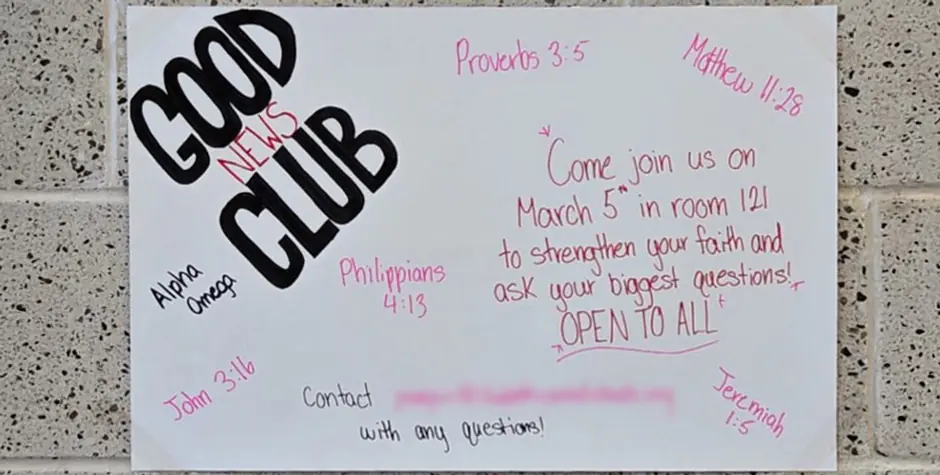 GOOD
NEWS
CLUB
Alpha
Omega
Proverbs 3:5
Matthew 11:28
Come join us on
March 5th in room 121
to strengthen your faith and
ask your biggest questions!
OPEN TO ALL
Philippians
4:13
John 3:16
Jeremiah
1:5
Contact
with any questions!